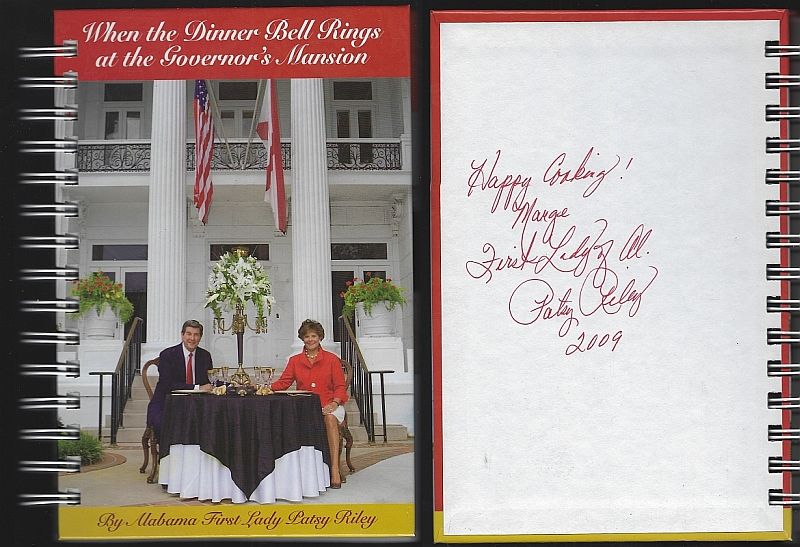 When the Dinner Bell Rings
at the Governor's Mansion
By Alabama First Lady Patsy Riley
Happy Cooking!
Marge
First Lady of Al.
Patsy Riley
2009